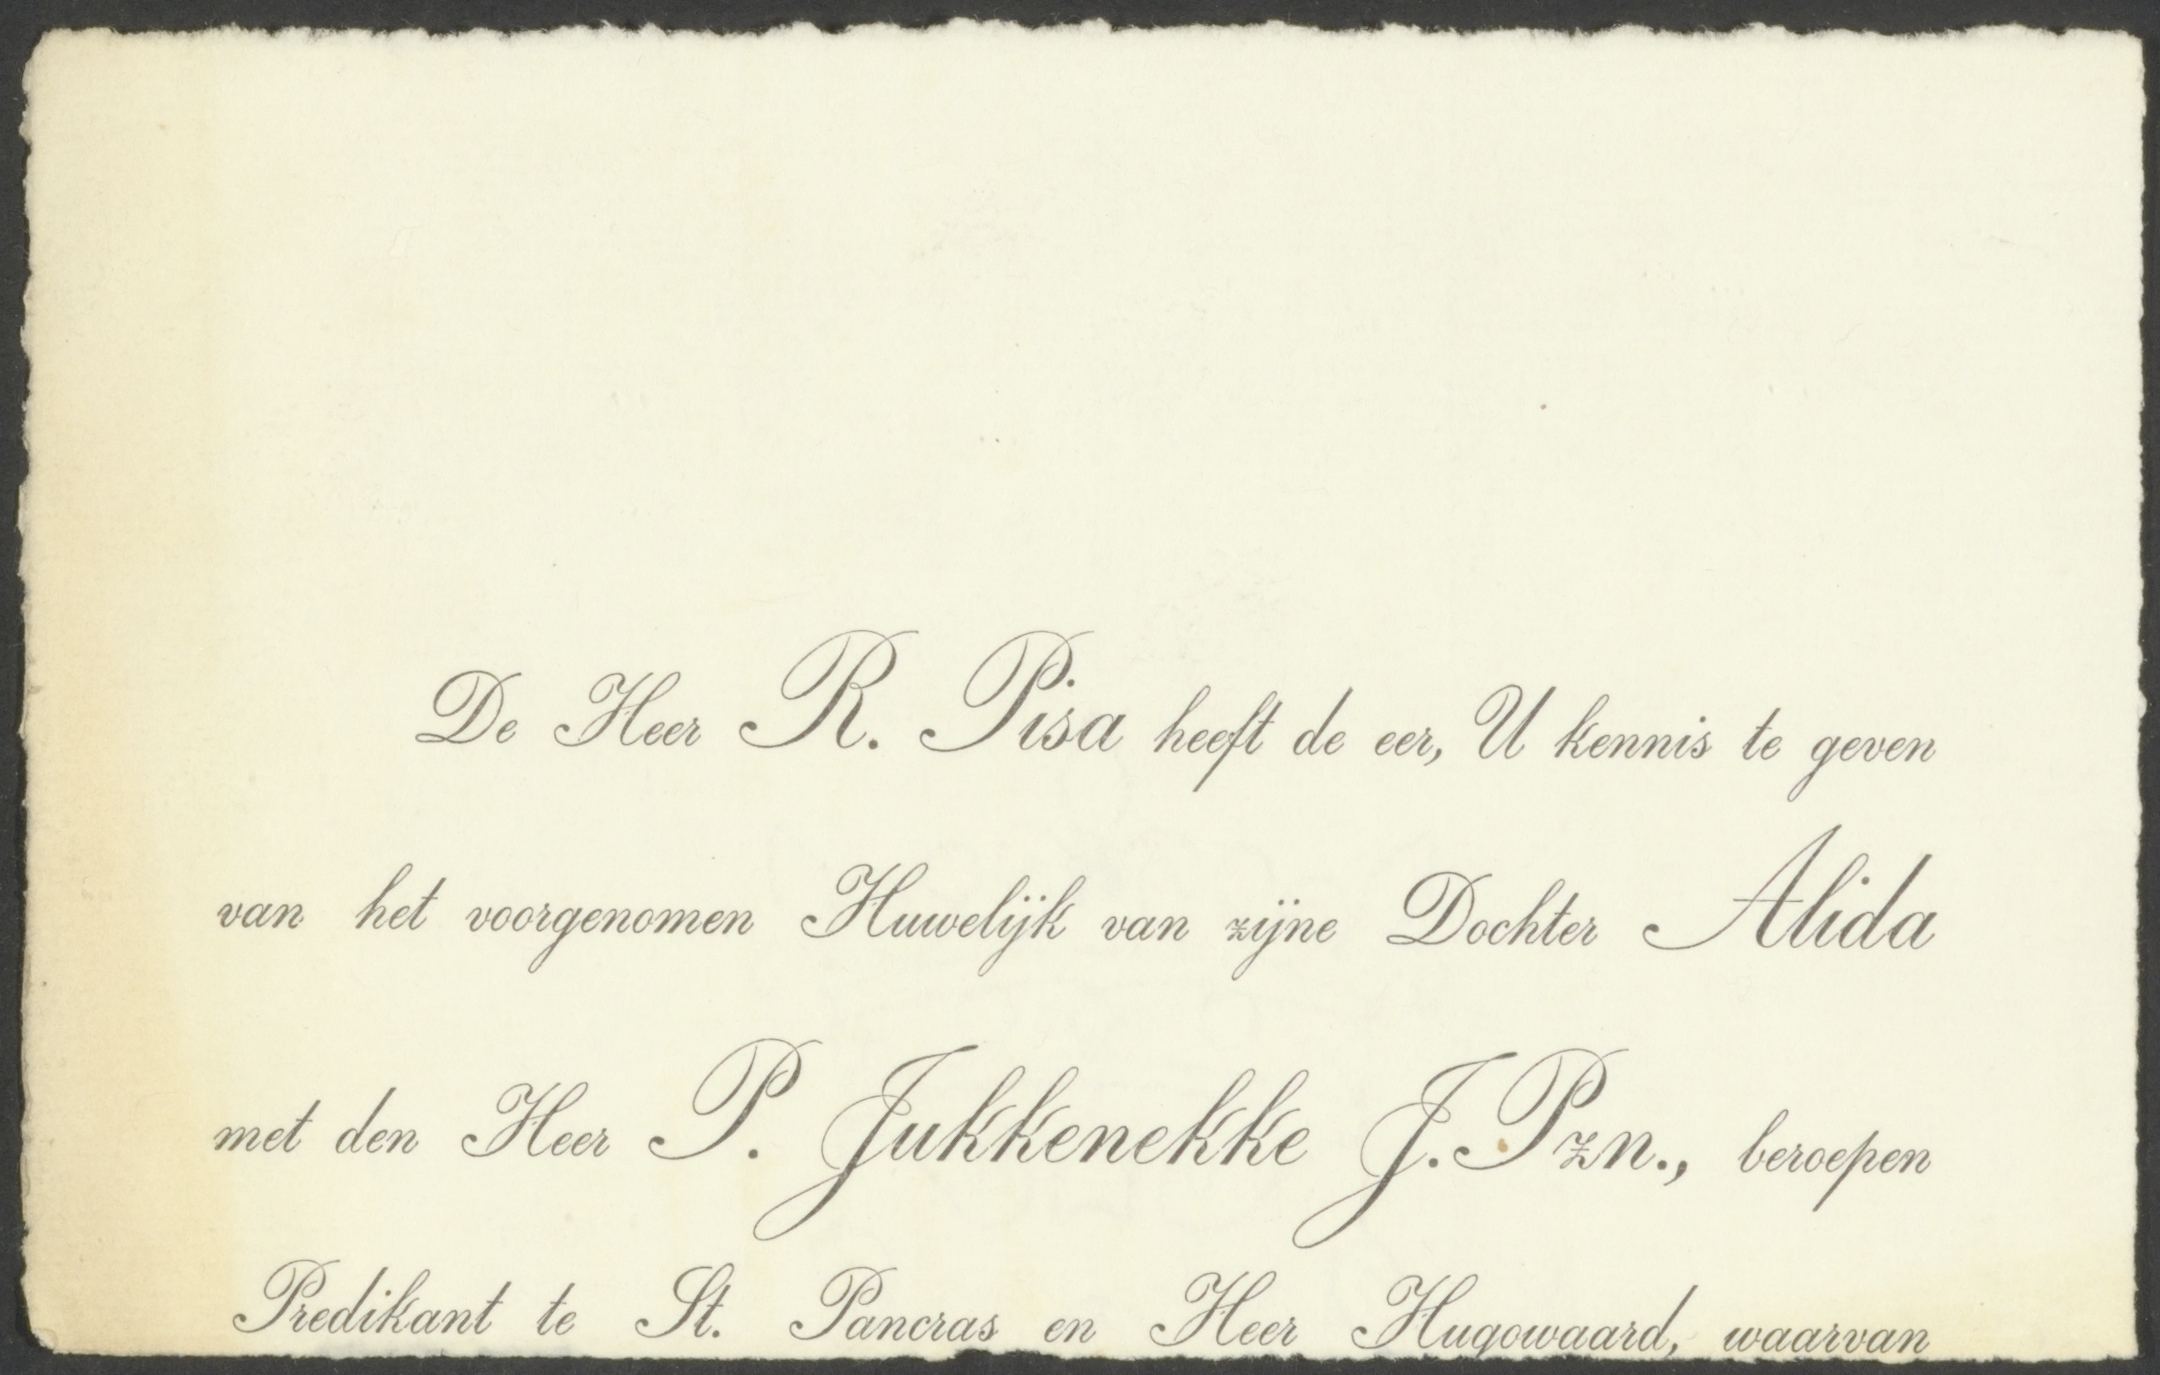 De Heer R. Pisa heeft de eer, U kennis te geven
van het voorgenomen Huwelijk van zijne Dochter Alida
met den Heer P. Jukkenekke J.Pzn., beroepen
Predikant te St. Pancras en Heer Hugowaard, waarvan